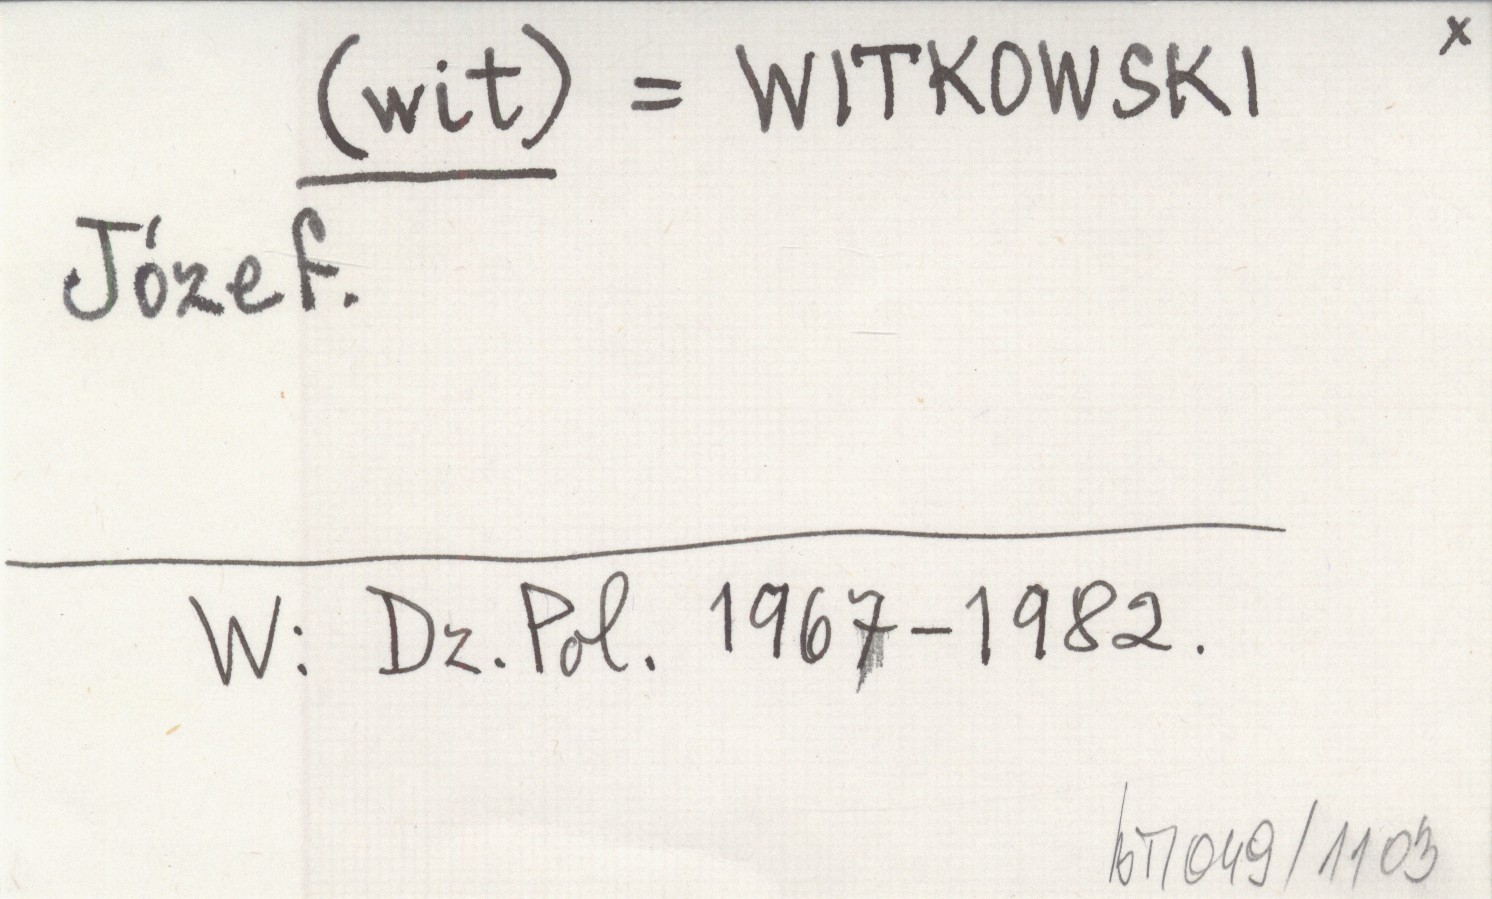 x
(wit) = WITKOWSKI
Józef.
W: Dz. Pol. 1967-1982.
049/1103